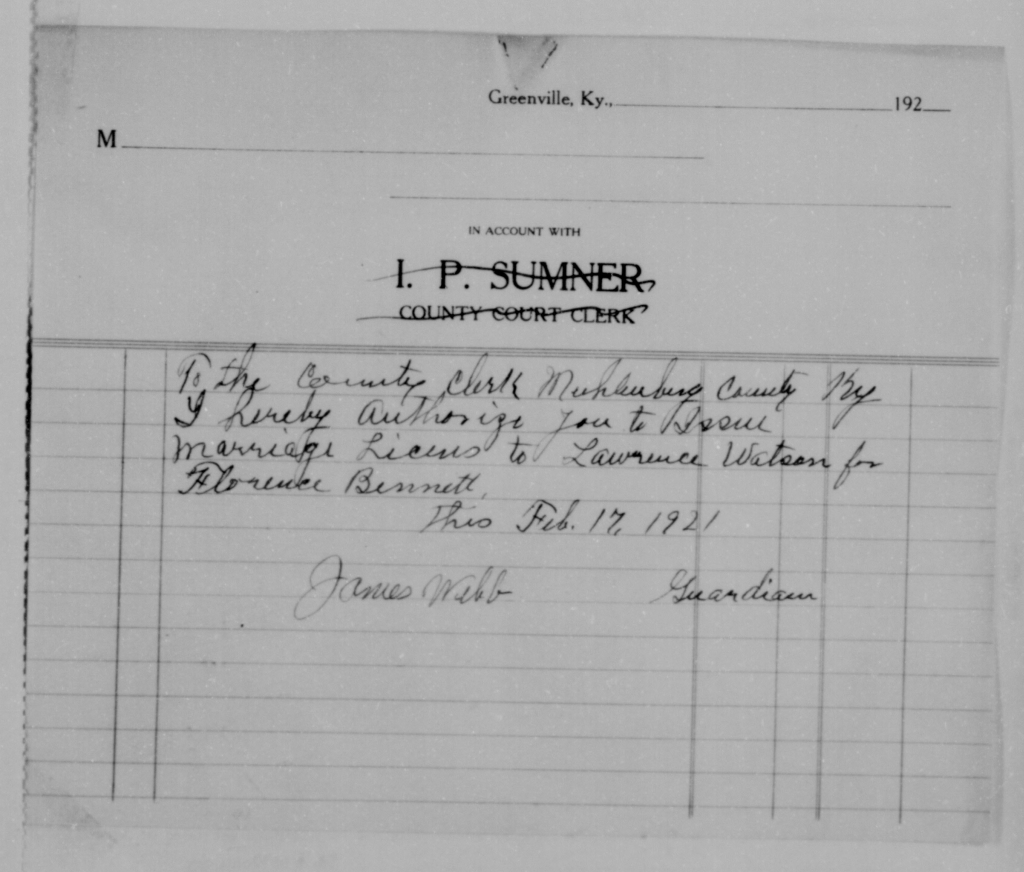 Greenville, Ky., 192
M
IN ACCOUNT WITH
I. P. SUMNER
COUNTY COURT CLERK
To the County Clerk Muhlenberg County Ky
I hereby Authorize you to Issue
Marriage Licens to Lawrence Watson for
Florence Bennett,
This Feb. 17, 1921
James Webb Guardian